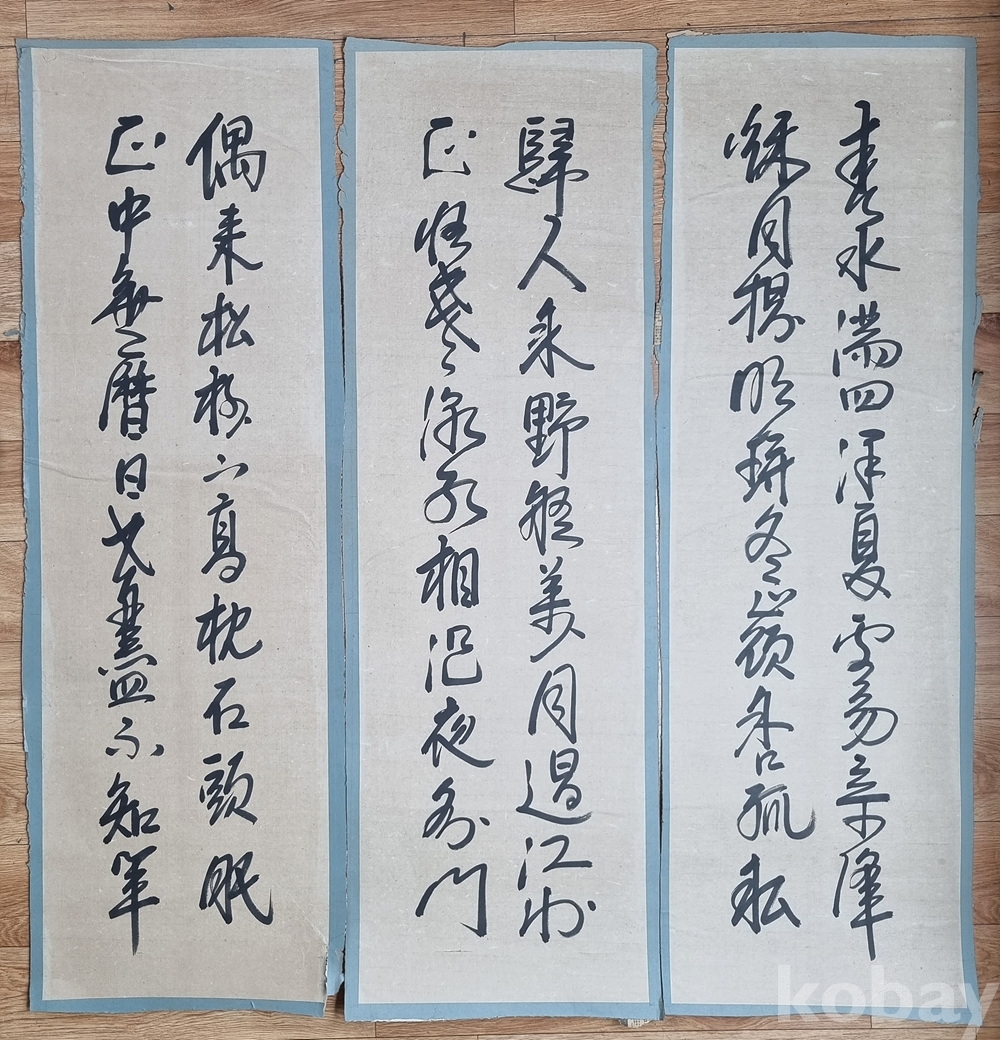 春水滿四澤夏雲多奇峰
秋月揚明輝冬嶺秀孤松
歸人乘野艇帶月過江村
正寒潮水相沿夜到門
偶來松樹下高枕石頭眠
正中無曆日寒盡不知年
kobay